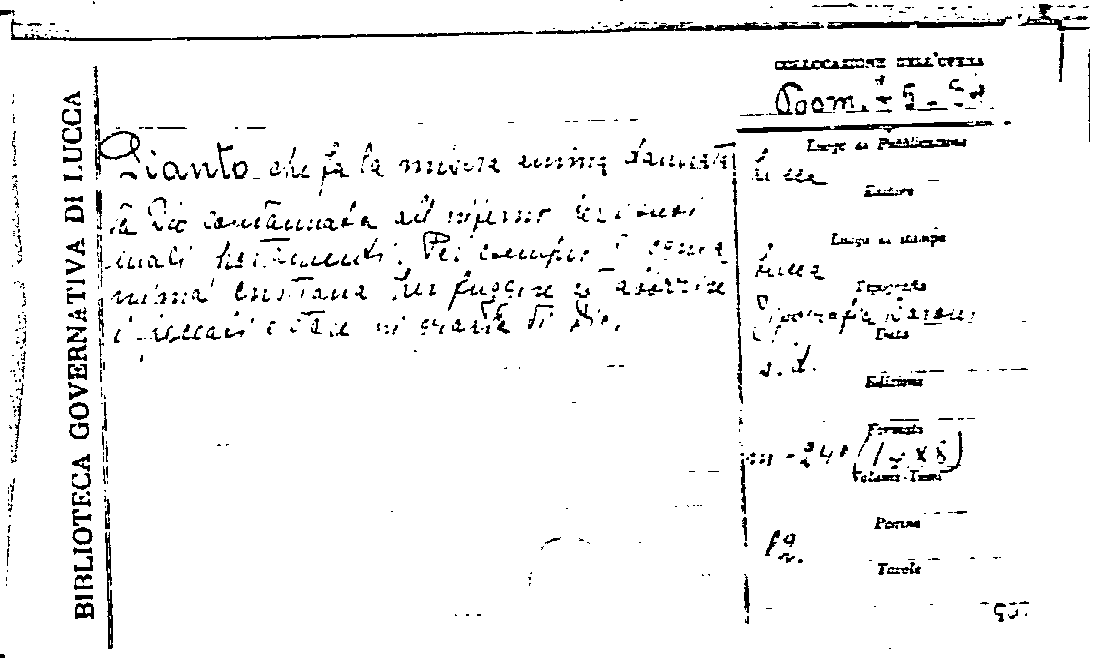 BIBLIOTECA GOVERNATIVA DI LUCCA
COLLOCAZIONE DELL'OPERA
Pianto che fa la misera anima dannata
da Dio condannata all'inferno
mali portamenti. Per esempio d'ogni a
nima cristiana per fuggire et aborrire
i peccati e stare in grazia di Dio.
Luogo di Pubblicazione
Lucca
Editore
Luogo di stampa
Lucca
Tipografia
Tipografia
Data
s. d.
Edizione
Formato
in-24°
Volumi-Tomi
Pagine
Tavole